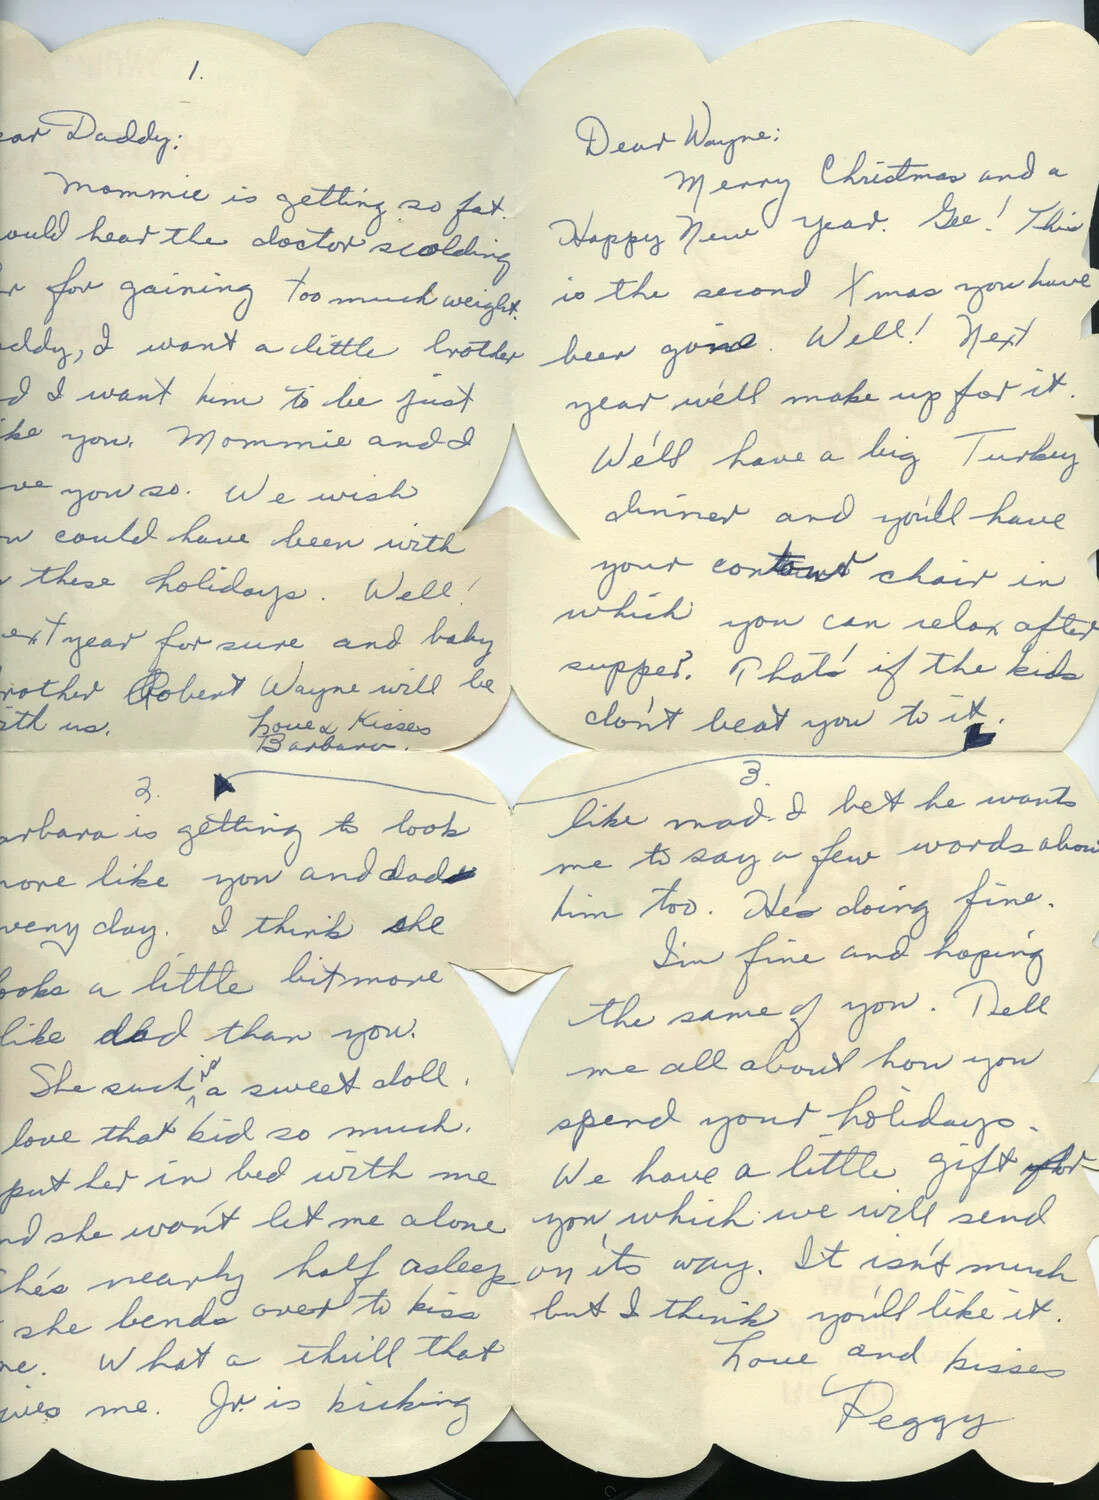 1.
ear Daddy:
Mommie is getting so fat.
ould hear the doctor scolding
r for gaining too much weight.
ddy, I want a little brother
d I want him to be just
ke you. Mommie and I
ve you so. We wish
could have been with
these holidays. Well!
ext year for sure and baby
rother Robert Wayne will be
ith us.
Love & Kisses
Barbara.
Dear Wayne:
Merry Christmas and a
Happy New Year. Gee! This
is the second Xmas you have
been gone. Well! Next
year we'll make up for it.
We'll have a big Turkey
dinner and you'll have
your contour chair in
which you can relax after
supper. That's if the kids
don't beat you to it.
2.
arbara is getting to look
more like you and dad
very day. I think she
ooks a little bit more
like dad than you.
She such is a sweet doll.
love that kid so much.
put her in bed with me
nd she won't let me alone
he's nearly half asleep
she bends over to kiss
me. What a thrill that
ives me. Jr. is kicking
3.
like mad. I bet he wants
me to say a few words abou
him too. He's doing fine.
I'm fine and hoping
the same of you. Tell
me all about how you
spend your holidays.
We have a little gift for
you which we will send
on its way. It isn't much
but I think you'll like it.
Love and kisses
Peggy